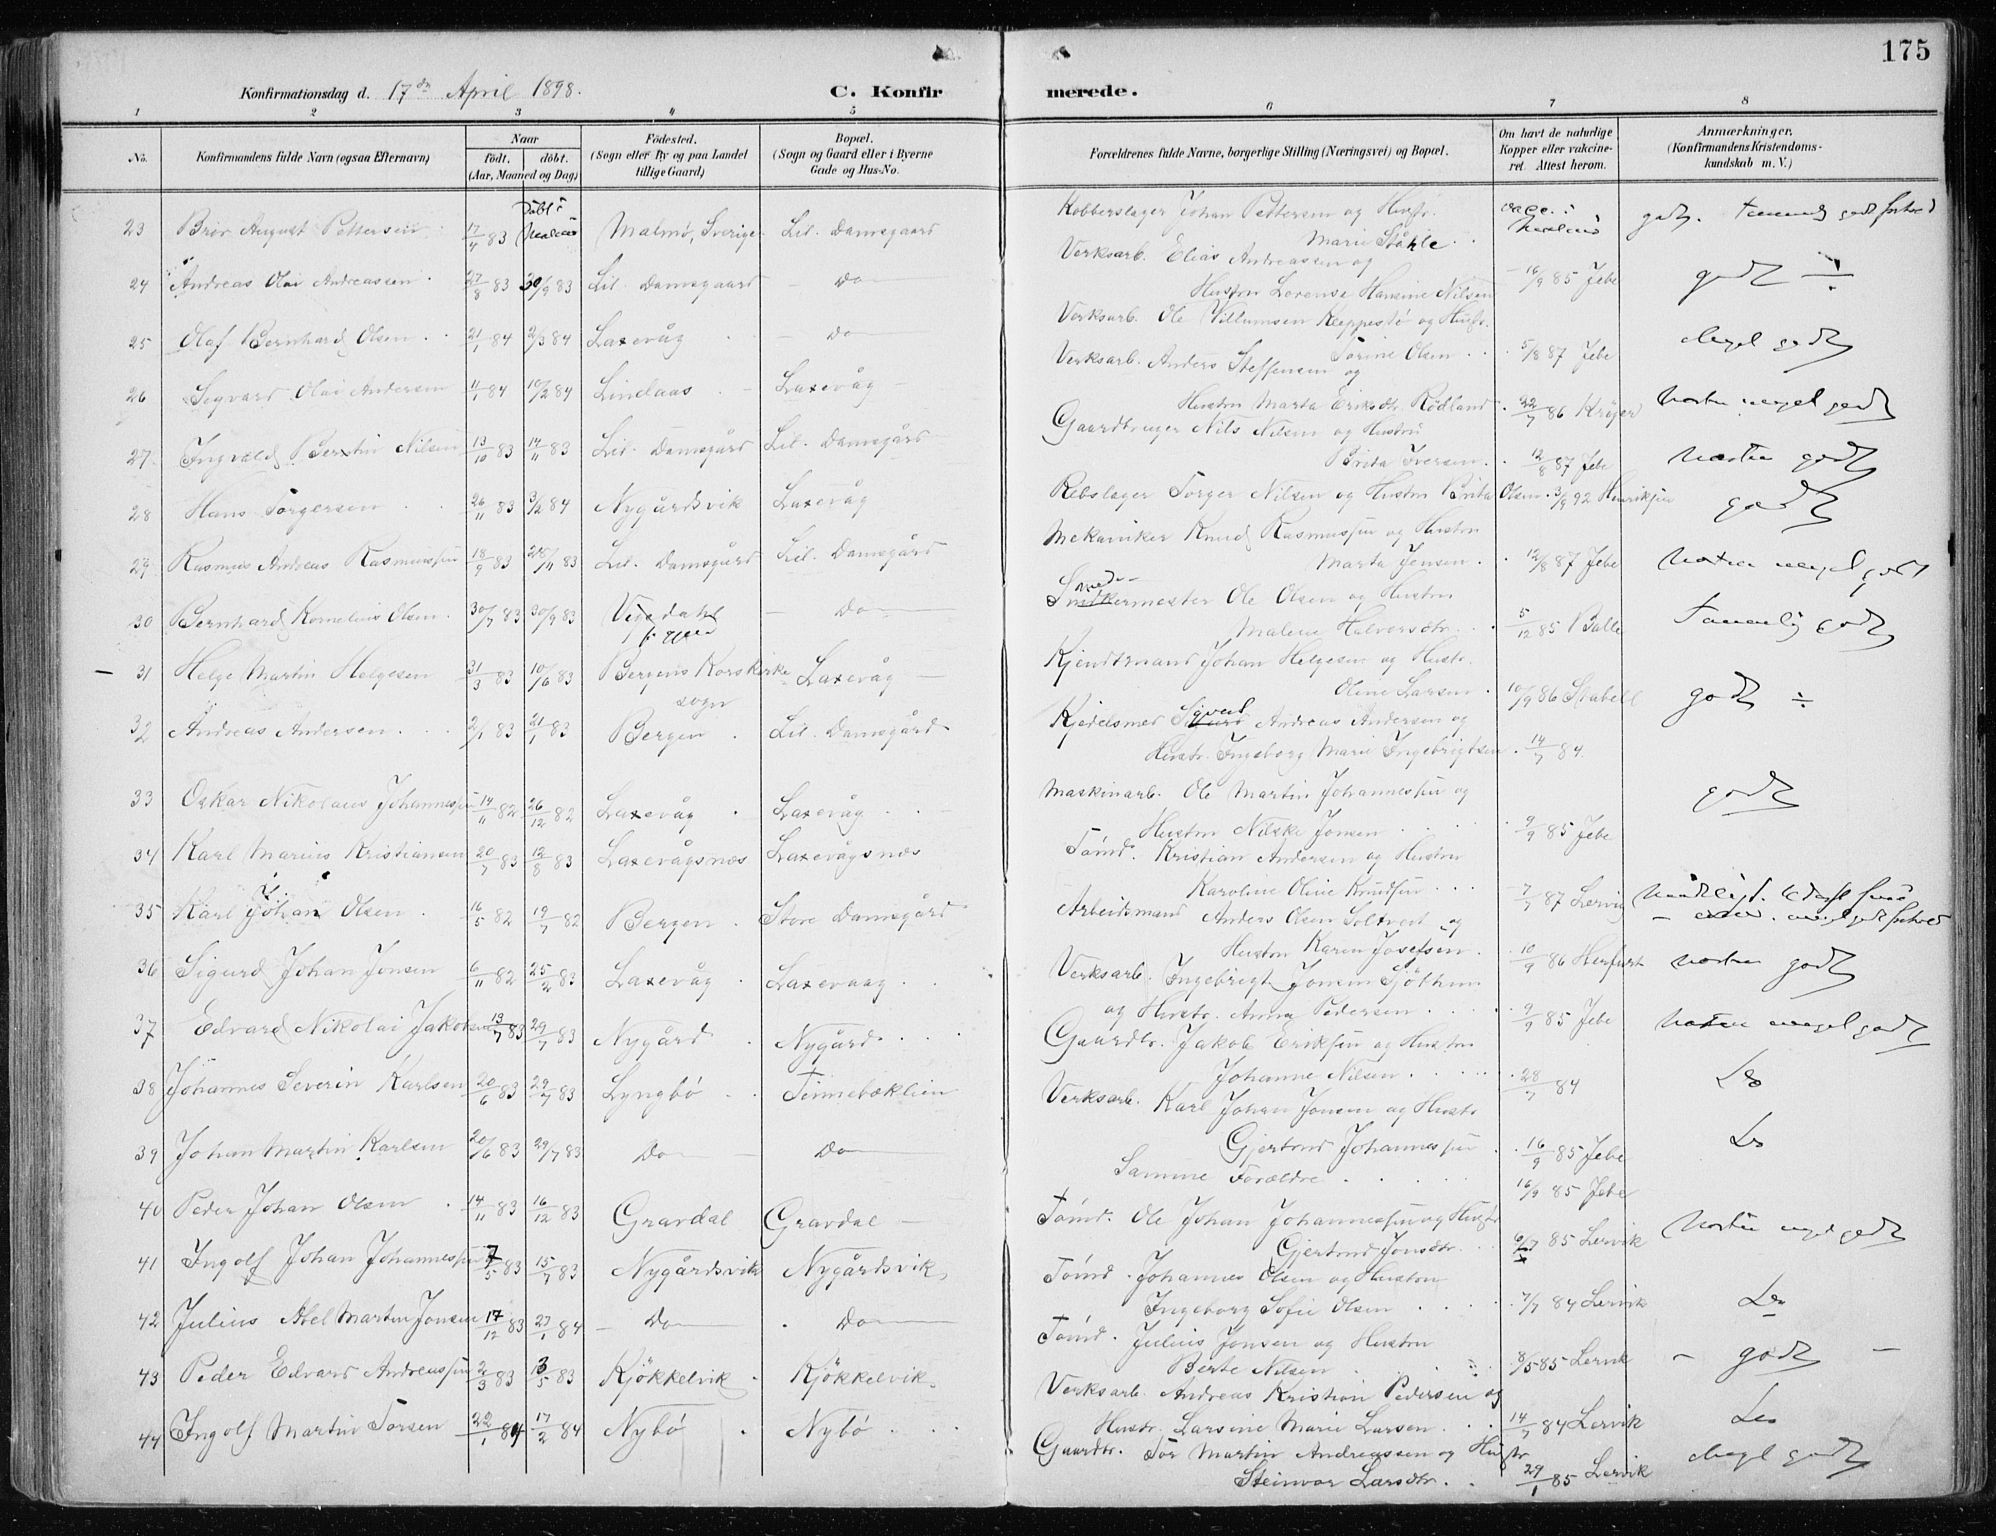 175
Konfirmationsdag d. 17de April 1898. C. Konfir merede.
1 2 3 4 5 6 7 8
No. Konfirmandens fulde Navn (ogsaa Efternavn) Naar födt. döbt. (Aar, Maaned og Dag) Födested. (Sogn eller By og paa Landet tillige Gaard) Bopæl. (Sogn og Gaard eller i Byerne Gade og Hus-No. Forældrenes fulde Navne, borgerlige Stilling (Næringsvei) og Bopæl. Om havt de naturlige Kopper eller vakcineret. Attest herom. Anmærkninger. (Konfirmandens Kristendomskundskab m. V.)
23 Bror August Pettersen 17/4 83 Döbt i Malmö Malmø, Sverige Lil. Damsgaard Kobberslager Johan Pettersen og Hustr.
Marie Ståhle godt.
24 Andreas Olai Andreassen 27/8 83 30/9 83 Lil. Damsgaard Do Verksarb. Elias Andreassen og
Hustru Lorense Hansine Nilsen 16/9 85 Jebe godt ÷
25 Olaf Bernhard Olsen 21/1 84 2/3 84 Laxevåg Do Verksarb. Ole Villumsen Kleppestø og Hustr.
Sorine Olsen 5/8 87 Jebe Meget godt
26 Sigvard Olai Andersen 11/1 84 10/2 84 Lindaas Laxevåg Verksarb. Anders Steffensen og
Hustru Marta Eriksdtr. Rødland 22/7 86 Krøjer Næsten meget godt
27. Ingvald Bertin Nilsen 13/10 83 14/11 83 Lil. Damsgård Lil. Damsgård Gaardbruger Nils Nilsen og Hustru
Brita Iversen 12/8 87 Jebe Næsten godt
28 Hans Torgersen 26/11 83 3/2 84 Nygårdsvik Laxevåg Rebslager Torger Nilsen og Hustru Brita Olsen 3/9 92 Henriksen godt
29 Rasmus Andreas Rasmussen 18/9 83 28/11 83 Lil. Damsgård Lil. Damsgård Mekaniker Knud Rasmussen og Hustru
Marta Jensen 12/8 87 Jebe Næsten meget godt
30 Bernhard Kornelius Olsen 30/7 83 30/9 83 Do Smedemester Ole Olsen og Hustru
Malene Halversdtr. 5/12 85 Balle Temmelig godt
31 Helge Martin Helgesen 31/3 83 10/6 83 Bergens Korskirke sogn Laxevåg Kjendtmand Johan Helgesen og Hustr.
Oline Larsen 10/9 86 Stabell godt ÷
32 Andreas Andersen 2/1 83 21/1 83 Bergen Lil. Damsgård Kjedelsmed Sigvard Andreas Andersen og
Hustr. Ingeborg Marie Ingebrigtsen 14/7 84.
33 Oskar Nikolaus Johannessen 14/11 82 26/12 82 Laxevåg Laxevåg Maskinarb. Ole Martin Johannessen og
Hustru Nilske Jonsen 9/9 85 Jebe godt
34 Karl Marius Kristiansen 20/7 83 12/8 83 Laxevågsnæs Laxevågsnæs Tömd. Kristian Andersen og Hustru
Karoline Oline Knudsen 7/7 87 Lervig
35 Karl Johan Olsen 16/5 82 19/7 82 Bergen Store Damsgård Arbeidsmand Anders Olsen Soltveit og
Hustru Karen Josefsen 10/9 86 Herfurt næsten godt
36 Sigurd Johan Jonsen 6/11 82 25/2 83 Laxevåg Laxevaag Verksarb. Ingebrigt Jonsen Sjöthun
og Hustr. Anna Pedersen 9/9 85 Jebe Næsten meget godt
37 Edvard Nikolai Jakobsen 13/7 83 29/7 83 Nygård Nygård Gaardbr. Jakob Eriksen og Hustru
Johanne Nilsen 28/7 84 Do
38 Johannes Severin Karlsen 20/6 83 29/7 83 Lyngbö Tennebæklien Verksarb. Karl Johan Jonsen og Hustr.
Gjertrud Johannessen 16/9 85 Jebe Do
39 Johan Martin Karlsen 20/6 83 29/7 83 Do Do Samme Forældre 16/9 85 Jebe
40 Peder Johan Olsen 14/11 83 16/12 83 Gravdal Gravdal Tömd. Ole Johan Johannessen og Hustr
Gjertrud Jonsdtr. 85 Lervik Næsten meget godt
41 Ingolf Johan Johannessen 7/5 83 15/7 83 Nygårdsvik Nygårdsvik Tömd. Johannes Olsen og Hustru
Ingeborg Sofie Olsen 7/7 84 Lervik Do
42 Julius Abel Martin Jonsen 17/12 83 27/1 84 Do Do Tömd. Julius Jonsen og Hustru
Berte Nilsen 8/5 85 Lervik godt
43 Peder Edvard Andreassen 2/3 83 13/5 83 Kjökkelvik Kjökkelvik Verksarb. Andreas Kristian Pedersen og
Hustr. Larsine Marie Larsen 14/7 84 Lervik Do
44 Ingolf Martin Torsen 22/1 84 17/2 84 Nybö Nybö Gaardbr. Tor Martin Andreassen og Hustr
Steinvor Larsdtr. 29/1 85 Lervik Meget godt